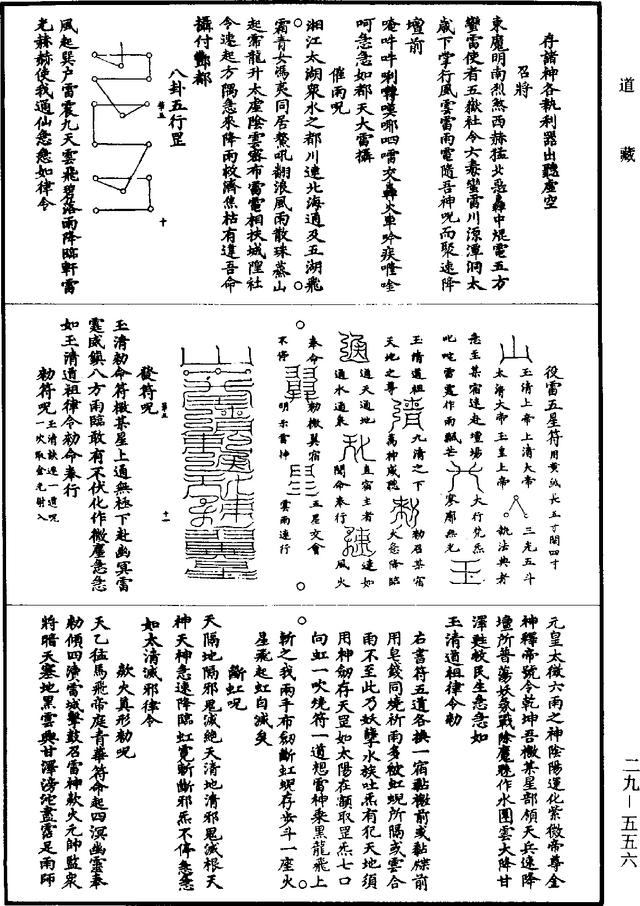 道藏
存諸神各執利器出聽虛空
召將
東魔明南烈煞西赫猛北惡轟中焜電五方
蠻雷使者五嶽社令六毒蠻雷川源潭洞太
歲下掌行風雲雷雨電隨吾神呪而聚速降
壇前
呵急急如都天大雷攝
催雨呪
湘江太湖眾水之都川連北海通及五湖飛
霜青女馮夷同居鰲吼翻浪風雨散珠蒸山
起霧龍升太虛陰雲密布雷電相扶城隍社
令速起方隅急來降雨救濟焦枯有違吾命
攝付酆都
八卦五行罡
第五
十
風起巽戶雷震九天雲飛碧落雨降臨軒雷
光赫赫使我通仙急急如律令
役雷五星符用黃紙長五寸闊四寸
玉清上帝上清大帝
太清大帝玉皇上帝
三光五斗
執法典者
急至某宿速赴壇場
叱咤雷霆作雨飄茫
大行炁炁
寥廓無光
玉清道祖
天地之尊
九清之下
萬神咸聽
勑召某宿
火急降臨
通天通地
通水通泉
直宿主者
聞命奉行
速如
風火
奉命
不停
勑檄箕宿
明示雷神
五星交會
雲雨速行
發符呪
第五
十一
玉清勑命符檄某星上通無極下赴幽冥雷
霆威鎮八方雨臨敢有不伏化作微塵急急
如玉清道祖律令勑命奉行
勑符呪玉清訣連一道呪
一吹取金光射入
元皇太微六雨之神陰陽運化紫微帝尊金
神釋帝號令乾坤吾檄某星部領天兵速降
壇所普蕩妖氛戰除魔魅作水團雲大降甘
澤甦救民生急急如
玉清道祖律令勑
右書符五道各換一宿黏檄前或黏牒前
用皂餃同燒祈雨多被虹蜺所隔或雲合
雨不至此乃妖孽水族吐炁有犯天地須
用神劒存天罡如太陽在額取罡炁七口
向虹一吹燒符一道想雷神乘黑龍飛上
斬之我兩手布劒斷虹蜺存步斗一座火
星飛起虹自滅矣
斷虹呪
天隔地隔邪鬼滅絕天清地清邪鬼滅根天
神天神急速降臨虹霓斬斷邪炁不停急急
如太清滅邪律令
歘火真形勑呪
天乙猛馬飛帝庭青華符命起四溟幽靈奉
勑傾四瀆雷城擊鼓召雷神歘火元帥監眾
將暗天塞地黑雲興甘澤滂沱盡霑足雨師
二九—五五六